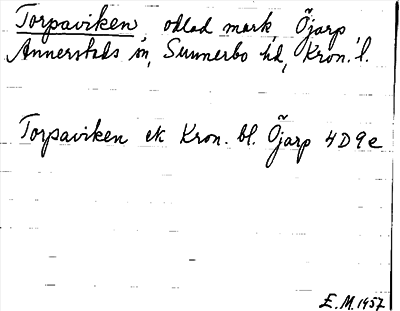 Torpaviken, odlad mark, Öjarp,
Annerstads sn, Sunnerbo hd, Kron. l.
Torpaviken ek Kron. bl. Öjarp 4D9e
E.M. 1957